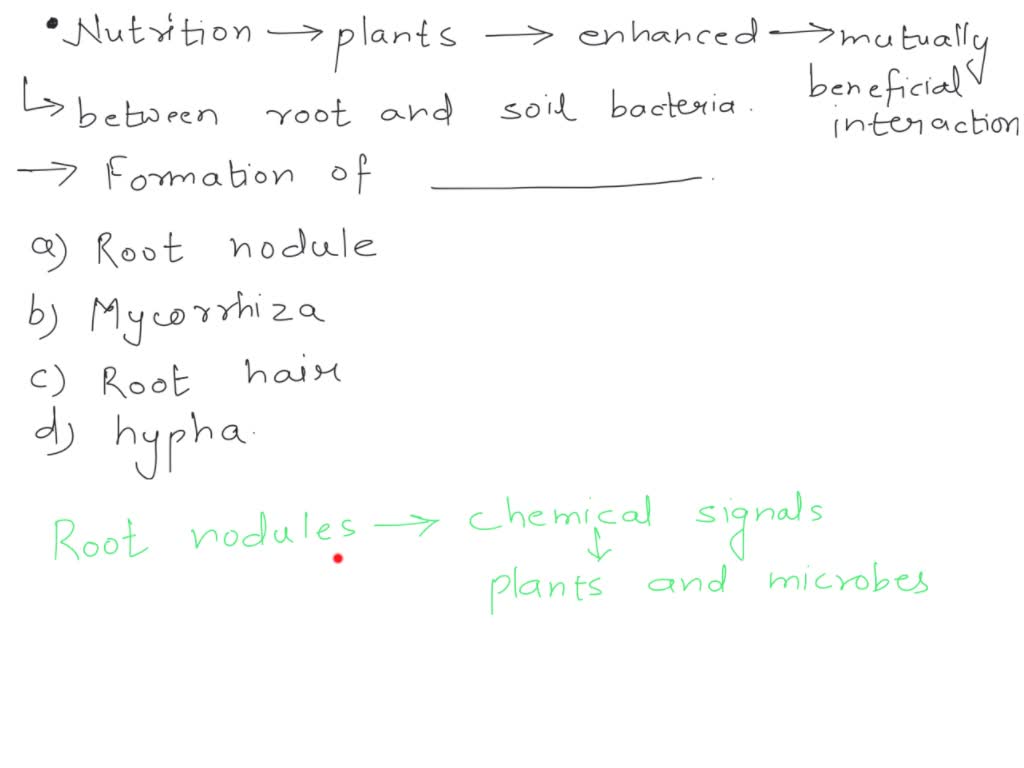 • Nutrition → plants → enhanced → mutually
beneficial
↳ between root and soil bacteria. interaction
→ Formation of ________.
a) Root nodule
b) Mycorrhiza
c) Root hair
d) hypha.
Root nodules → chemical signals
↓
plants and microbes